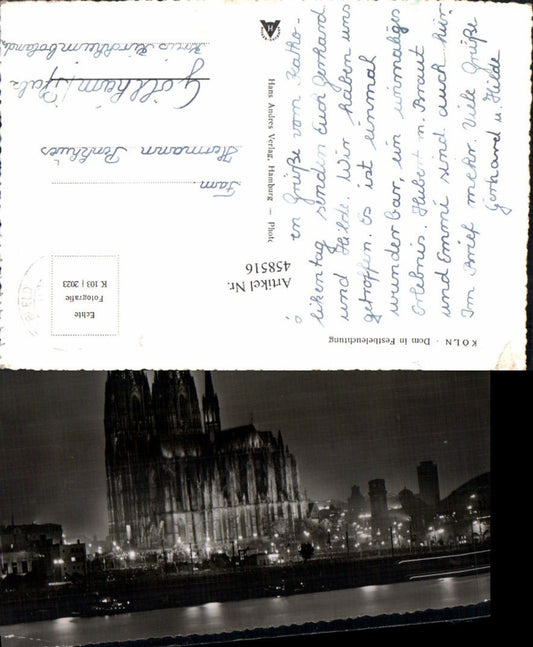 KÖLN · Dom in Festbeleuchtung
en Grüße vom Katho-
likentag senden Euch Gerhard
und Hilde. Wir haben uns
getroffen. Es ist einmal
wunderbar, ein einmaliges
Erlebnis. Hubert m. Braut
und Emmi sind auch hier.
Im Brief mehr. Viele Grüße
Gerhard u. Hilde
Artikel Nr.
458516
Hans Andres Verlag, Hamburg — Photo
Echte
Fotografie
K 103 | 2023
Fam.
Hermann
Göllheim/Pfalz
Kreis Kirchheimboland.